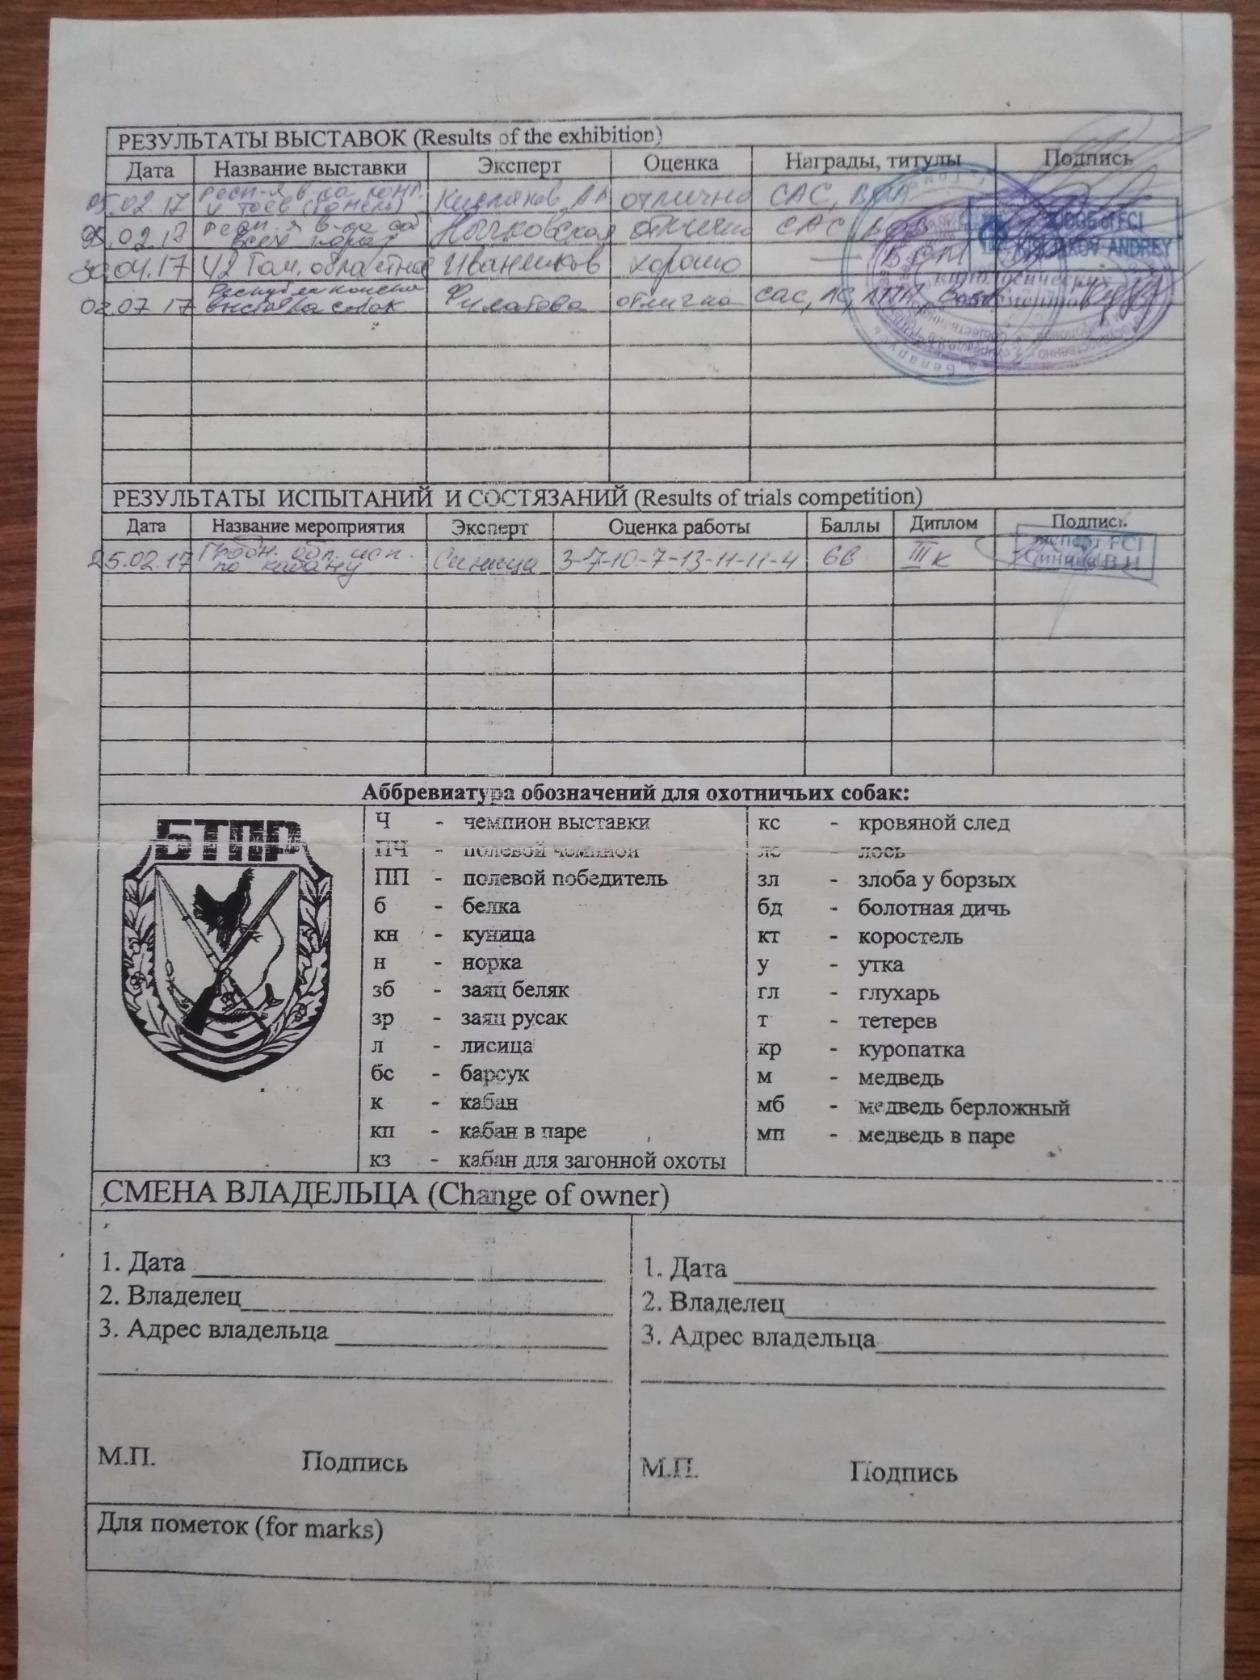 РЕЗУЛЬТАТЫ ВЫСТАВОК (Results of the exhibition)
Дата Название выставки Эксперт Оценка Награды, титулы Подпись
05.02.17 отлично CAC,
.02.17 всех пород CAC
30.04.17 42 Гом. областная Иванников хорошо
02.07.17 Республиканская выставка собак Филатова отлично CAC,
JUDGE of FCI
KISLIAKOV ANDREY
РЕЗУЛЬТАТЫ ИСПЫТАНИЙ И СОСТЯЗАНИЙ (Results of trials competition)
Дата Название мероприятия Эксперт Оценка работы Баллы Диплом Подпись
25.02.17 по кабану Синица 3-7-10-7-13-11-11-4 66 III к
Эксперт FCI
Синица В.И.
Аббревиатура обозначений для охотничьих собак:
БТПР
Ч - чемпион выставки
ПЧ - полевой чемпион
ПП - полевой победитель
б - белка
кн - куница
н - норка
зб - заяц беляк
зр - заяц русак
л - лисица
бс - барсук
к - кабан
кп - кабан в паре
кз - кабан для загонной охоты
кс - кровяной след
лс - лось
зл - злоба у борзых
бд - болотная дичь
кт - коростель
у - утка
гл - глухарь
т - тетерев
кр - куропатка
м - медведь
мб - медведь берложный
мп - медведь в паре
СМЕНА ВЛАДЕЛЬЦА (Change of owner)
1. Дата
2. Владелец
3. Адрес владельца
М.П. Подпись
1. Дата
2. Владелец
3. Адрес владельца
М.П. Подпись
Для пометок (for marks)